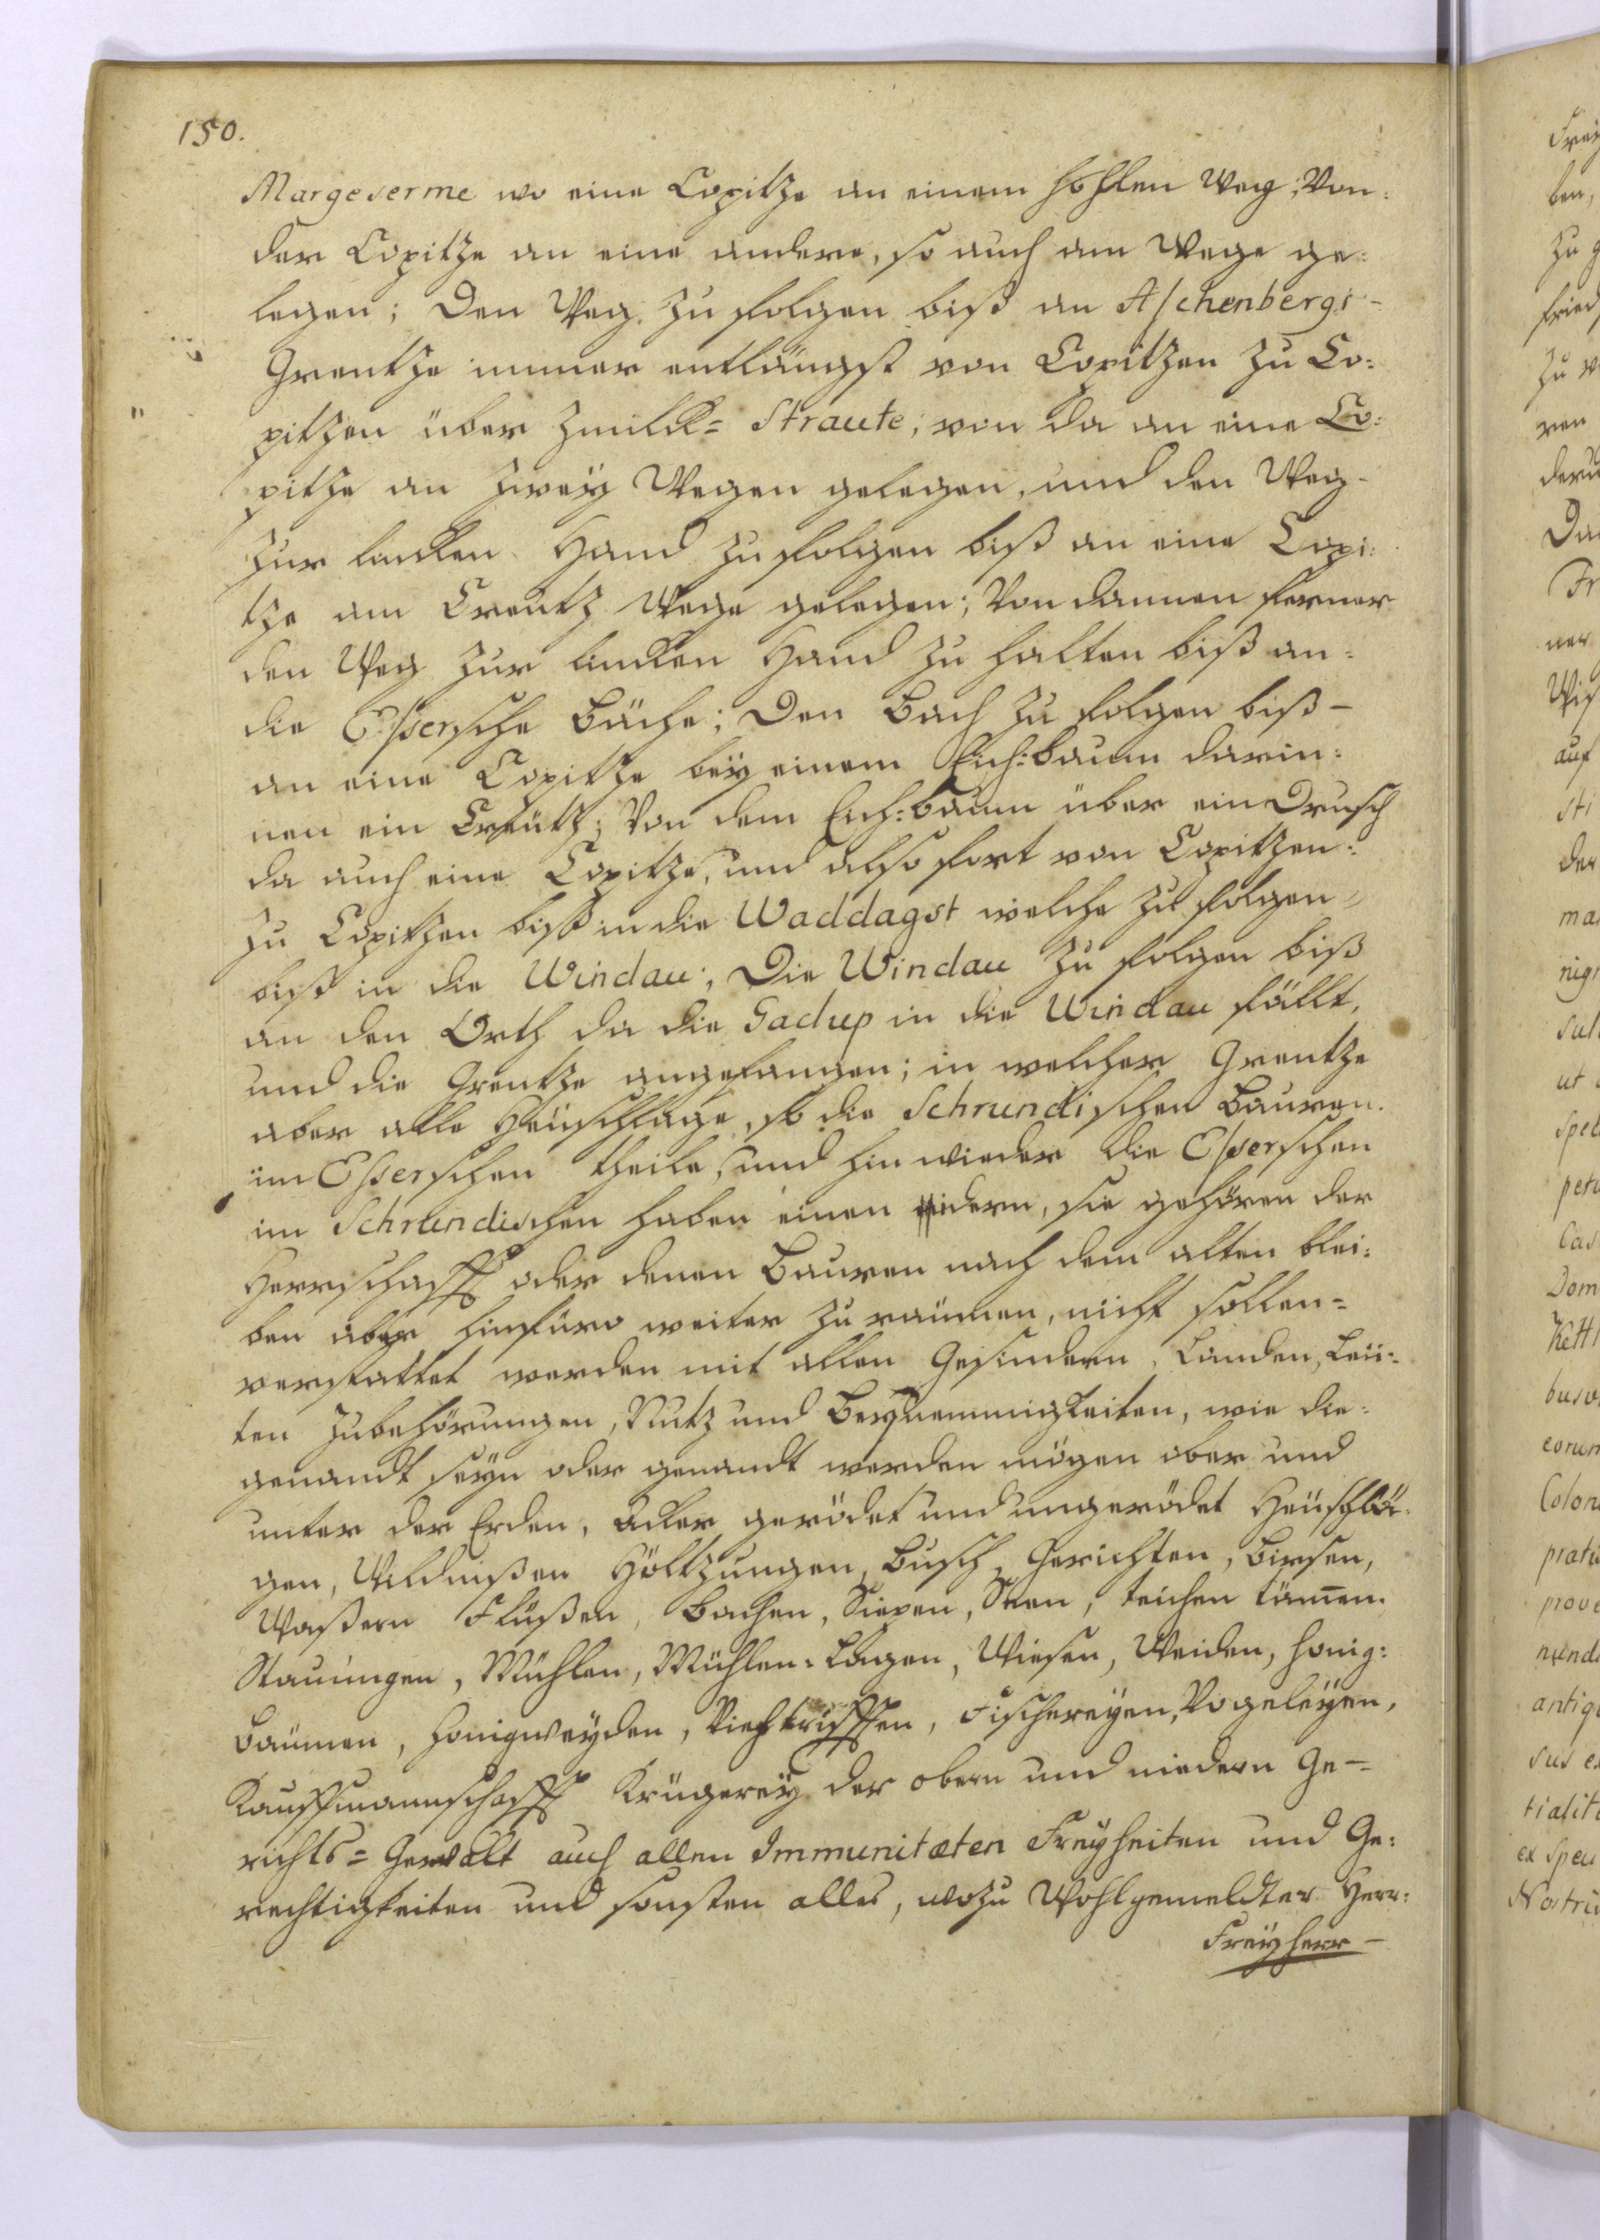 150.
Margeserme wo eine Copitze an einem hohlen Weg; Von:
der Copitze an eine andere, so auch am Wege ge:
legen; Den Weg zu folgen biß an Aschenbergs-
Grentze immer entlängst von Copitzen zu Co:
pitzen über Straute; von da an eine Co:
pitze an zwey Wegen gelegen, und den Weg-
zur lincken Hand zu folgen biß an eine Copi:
tze am Creutz Wege gelegen; Von dannen ferner
den Weg zur lincken Hand zu halten biß an:
die Essersche Bäche; Den Bach zu folgen biß-
an eine Copitze bey einem Eich:baum darin:
nen ein Creütz; Von dem Eich:baum über ein Drusch
da auch eine Copitze, und also fort von Copitzen:
zu Copitzen biß in die Waddagst welche zu folgen
biß in die Windau; Die Windau zu folgen biß
an den Orth da die Gadup in die Windau fällt,
und die Grentze angefangen; in welcher Grentze
aber alle Heüschläge, so die Schrundischen Bauren.
im Esserschen theile, und hinwieder die Esserschen
im Schrundischen haben einen jedern, sie gehören der
Herrschafft oder denen Bauren nach dem alten blei:
ben aber hinfüro weiter zu räumen, nicht sollen=
verstattet werden mit allen Gesindern, Landen, Leü:
ten Zubehörungen, Nutz und Bequemmigkeiten, wie die:
genandt seyn oder genandt werden mögen ober und
unter der Erden, Acker gerödet und ungerödet Heüschlä:
gen, Wildnißen Höltzungen, Busch, Gerichten, Birsen,
Waßern Flüßen, Bachen, Siepen, Seen, teichen tämen.
Stauungen, Mühlen, Mühlen-Lägen, Wiesen, Weiden, Honig:
Bäumen, Honigweyden, Viehtrifften, Fischereyen, Vogeleyen,
Kauffmannschafft Krügerey der obern und niedern Ge-
richts= Gewalt auch allen Immunitæten Freyheiten und Ge:
rechtigkeiten und sonsten alles, wozu Wohlgemeldter Herr:
Freyherr-